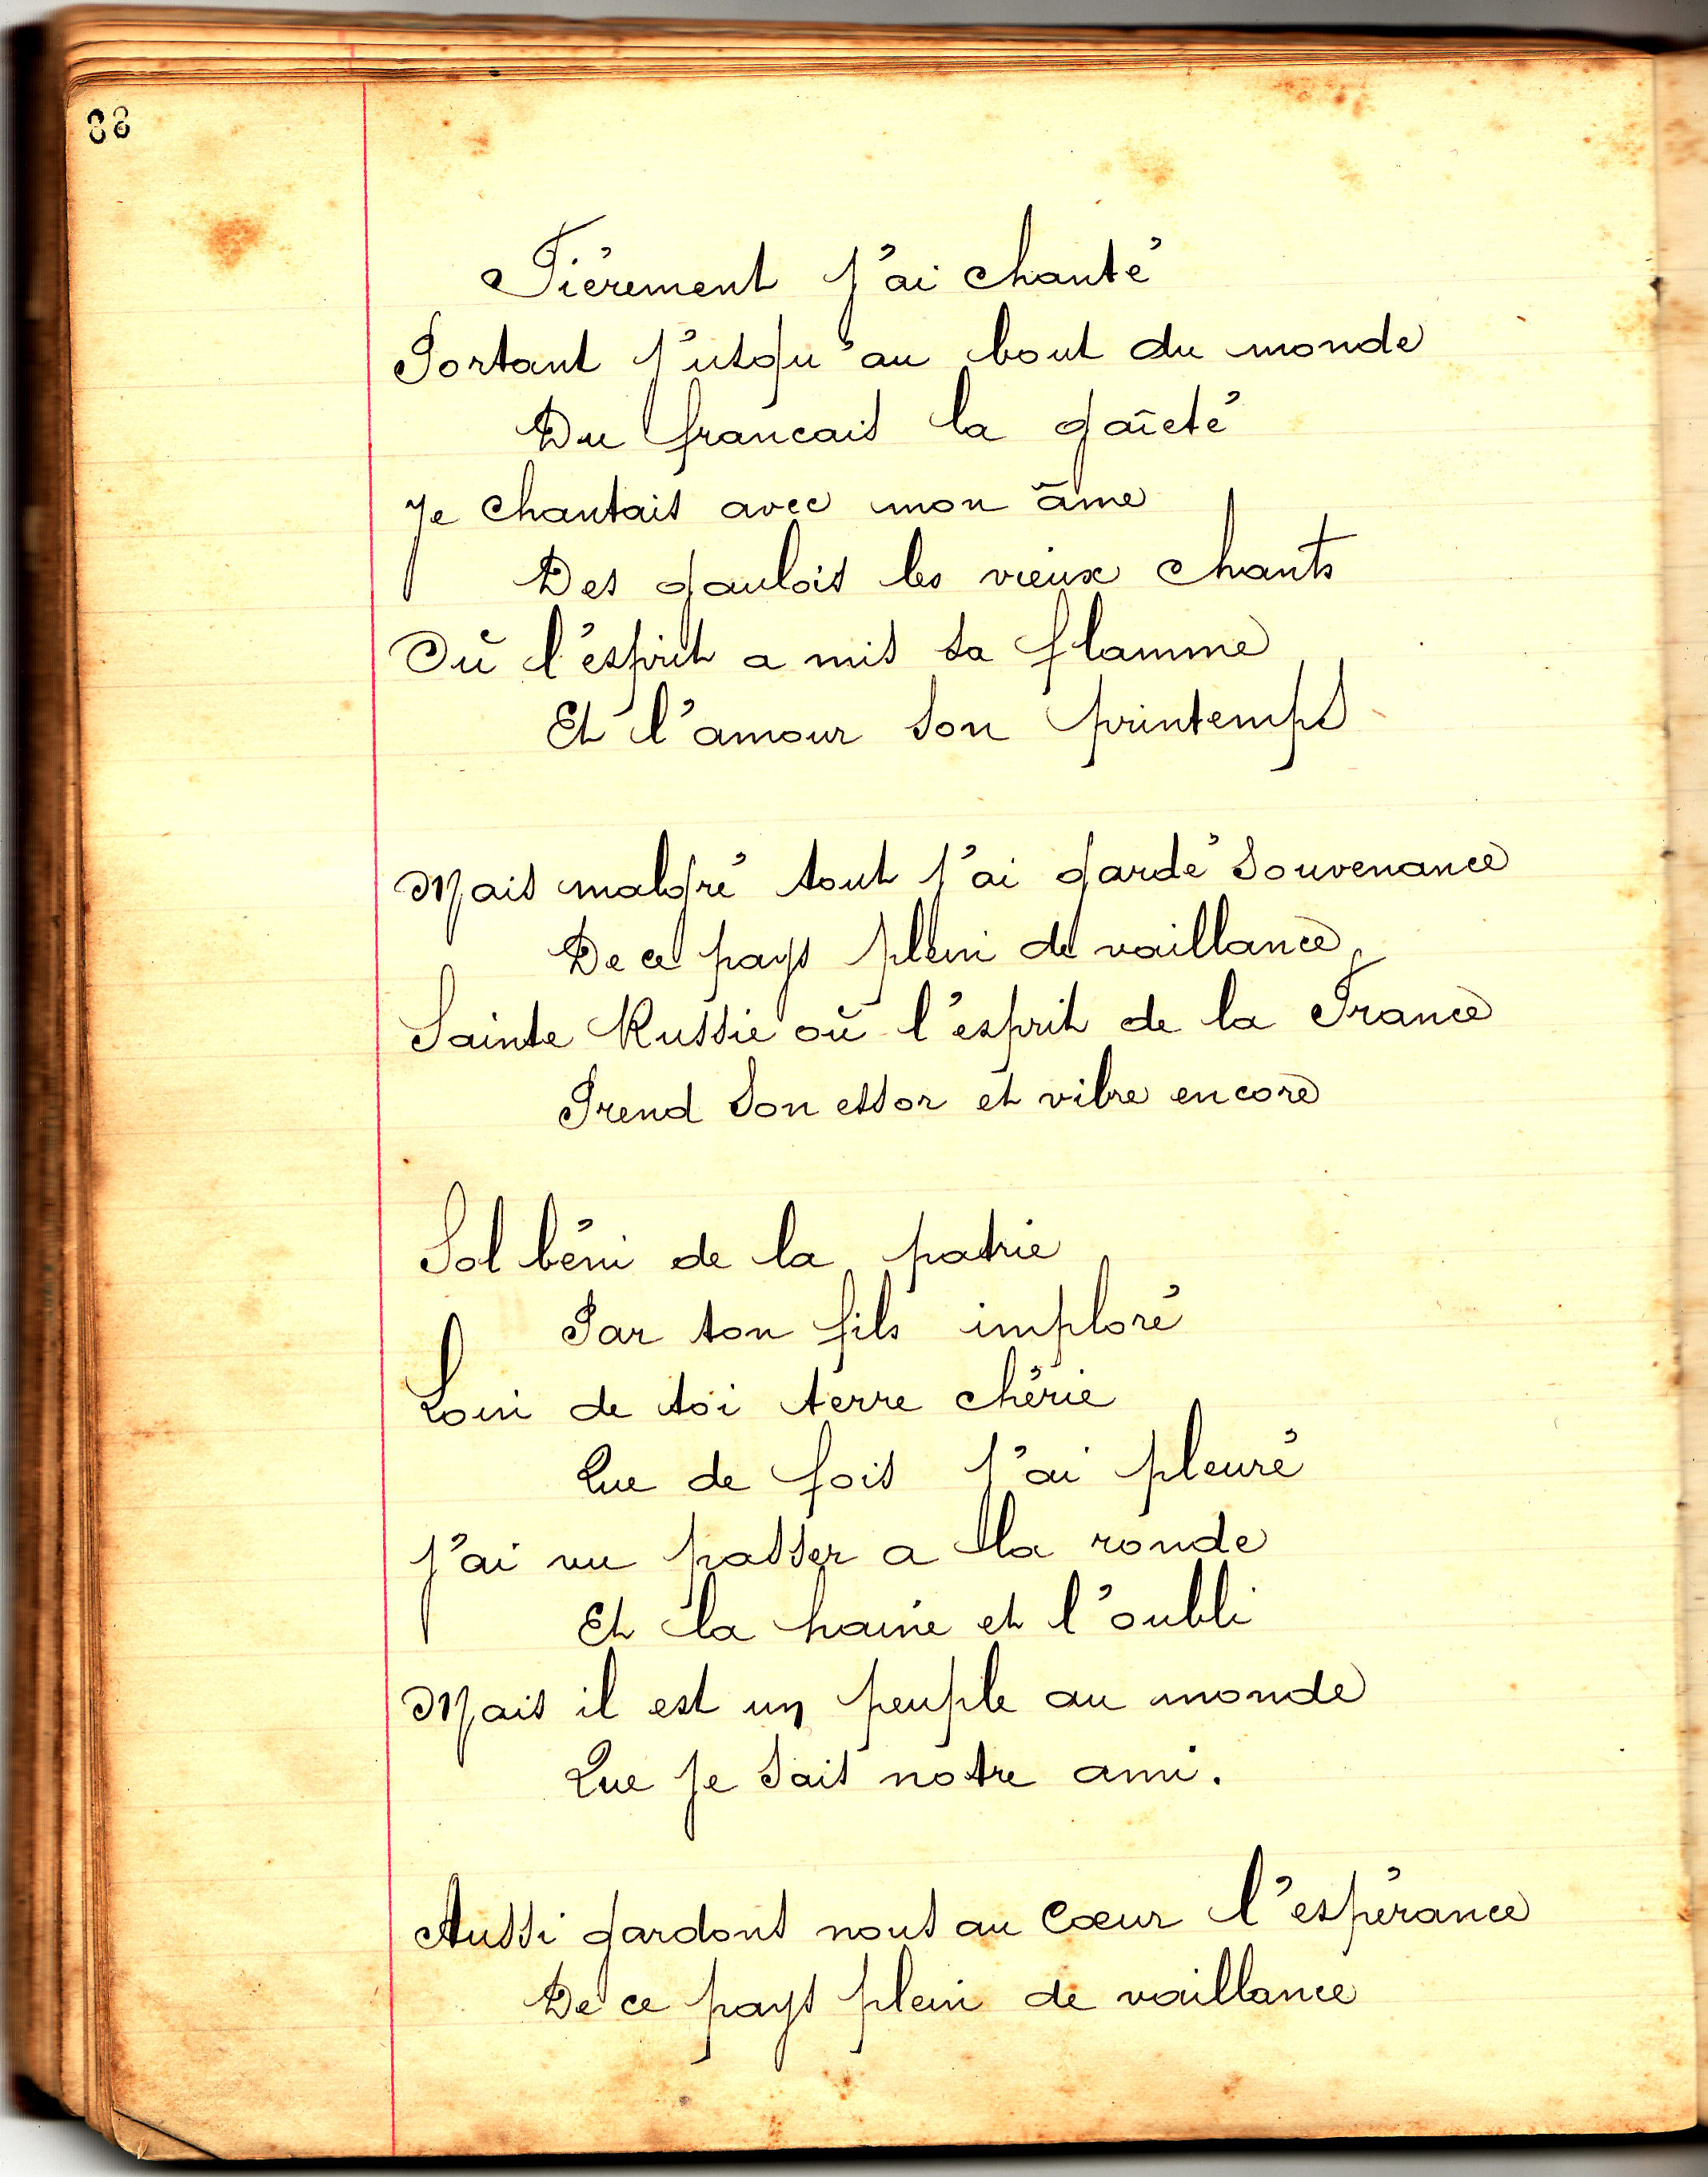 88
Fièrement j'ai chanté
Portant j'usqu'au bout du monde
Du francais la gaîeté
Je chantais avec mon âme
Des gaulois les vieux chants
Où l'ésprit a mis sa flamme
Et l'amour son printemps
Mais malgré tout j'ai gardé souvenance
De ce pays plein de vaillance
Sainte Russie où l'esprit de la France
Prend son essor et vibre encore
Sol béni de la patrie
Par ton fils imploré
Loin de toi terre chérie
Que de fois j'ai pleuré
J'ai vu passer a la ronde
Et la haine et l'oubli
Mais il est un peuple au monde
Que je sais notre ami.
Aussi gardons nous au cœur l'espérance
De ce pays plein de vaillance